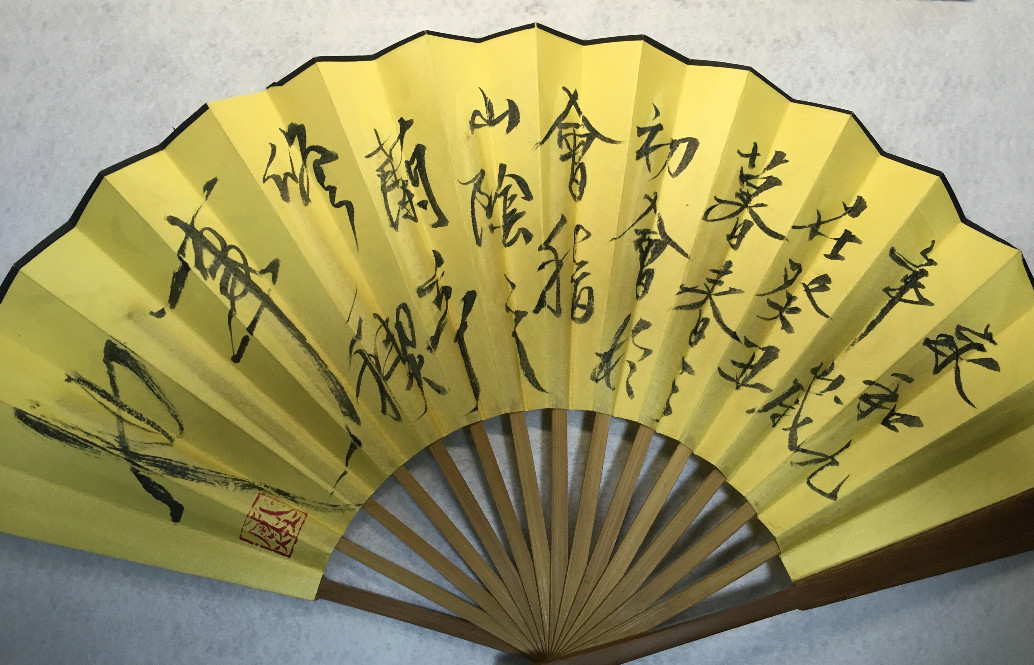 永和九
年歲
在癸丑
暮春之
初會於
會稽
山陰之
蘭亭
修禊
事
也